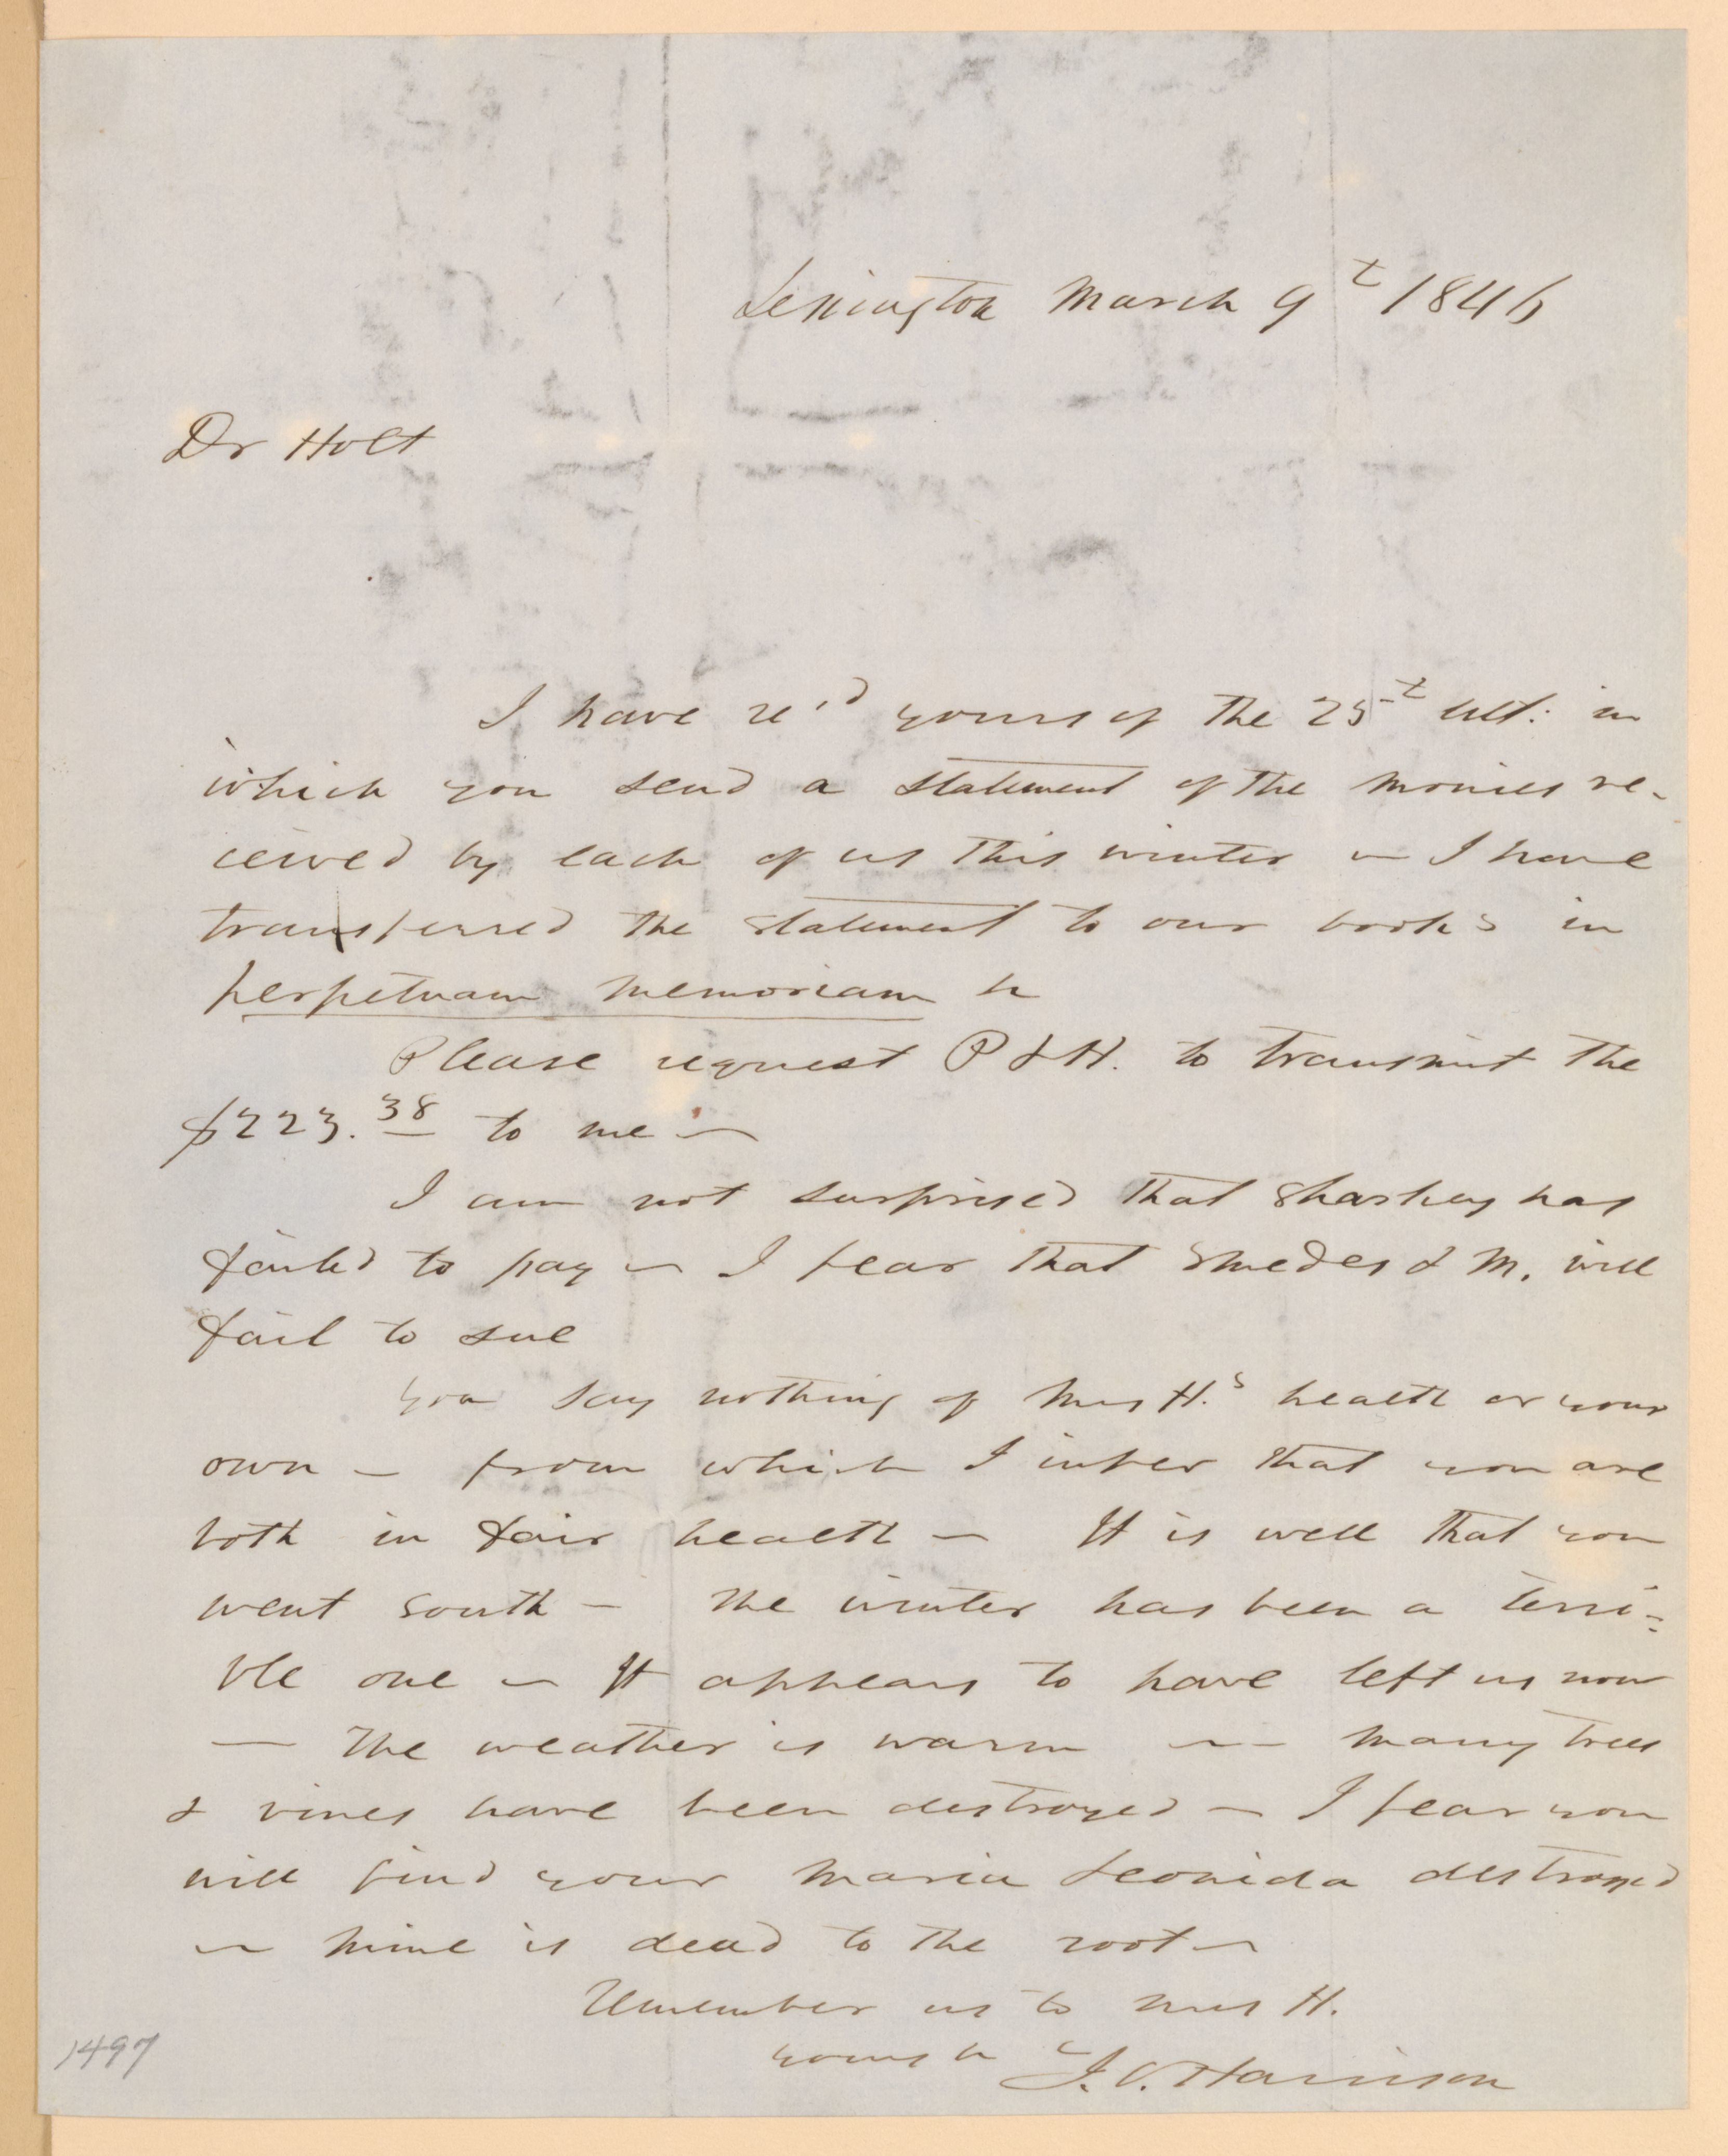 Lexington March 9t 1846
Dr Holt
I have re'd yours of the 25t ult: in
which you send a statement of the monies re-
ceived by each of us this winter — I have
transferred the statement to our books in
perpetuam memoriam
Please request P & H. to transmit the
$223.38 to me —
I am not surprised that Sharkey has
failed to pay — I fear that Smedes & M. will
fail to sue
You say nothing of Mrs H.s health or your
own — from which I infer that you are
both in fair health — It is well that you
went south — The winter has been a terri-
ble one — It appears to have left us now
— The weather is warm — many trees
& vines have been destroyed — I fear you
will find your Maria Leonida destroyed
— mine is dead to the root —
Remember us to Mrs H.
yours J. O. Harrison
1497